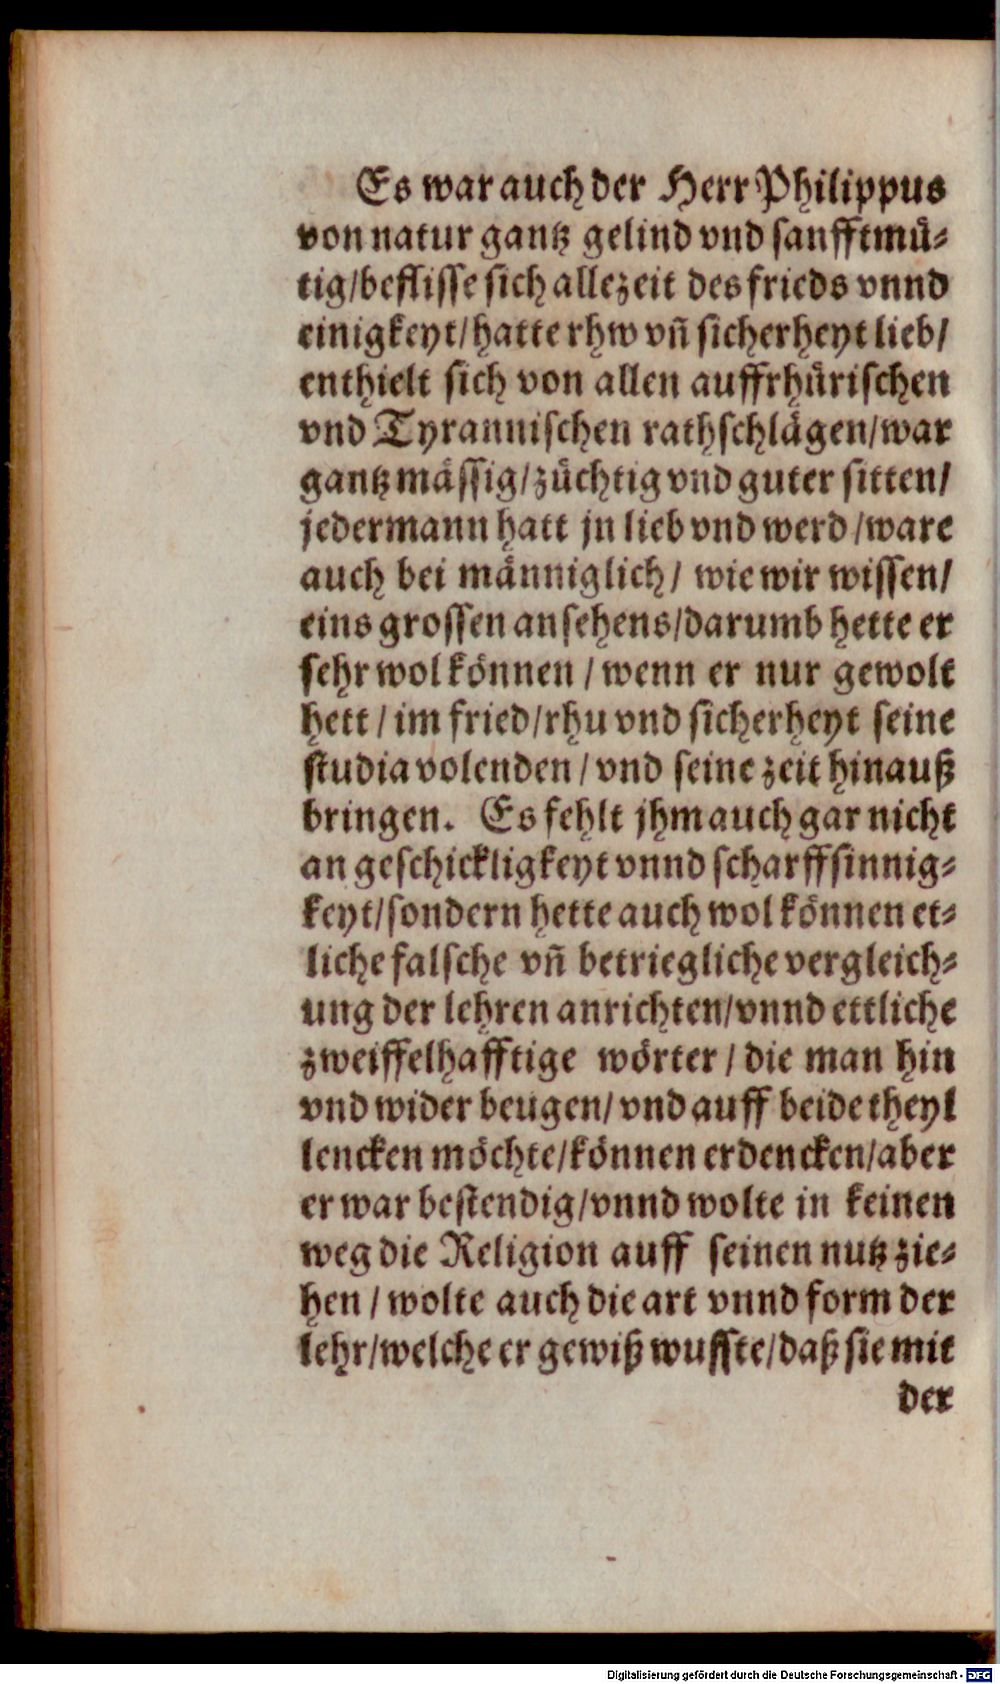 Es war auch der Herr Philippus
von natur gantz gelind vnd sanfftmü-
tig/beflisse sich allezeit des frieds vnnd
einigkeyt/hatte rhw vñ sicherheyt lieb/
enthielt sich von allen auffrhürischen
vnd Tyrannischen rathschlägen/war
gantz mässig/züchtig vnd guter sitten/
jedermann hatt jn lieb vnd werd/ware
auch bei männiglich/ wie wir wissen/
eins grossen ansehens/darumb hette er
sehr wol können/wenn er nur gewolt
hett/im fried/rhu vnd sicherheyt seine
studia volenden/vnd seine zeit hinauß
bringen. Es fehlt jhm auch gar nicht
an geschickligkeyt vnnd scharffsinnig-
keyt/sondern hette auch wol können et-
liche falsche vñ betriegliche vergleich-
ung der lehren anrichten/vnnd ettliche
zweiffelhafftige wörter/die man hin
vnd wider beugen/vnd auff beide theyl
lencken möchte/können erdencken/aber
er war bestendig/vnnd wolte in keinen
weg die Religion auff seinen nutz zie-
hen/wolte auch die art vnnd form der
lehr/welche er gewiß wusste/daß sie mit
der
Digitalisierung gefördert durch die Deutsche Forschungsgemeinschaft - DFG